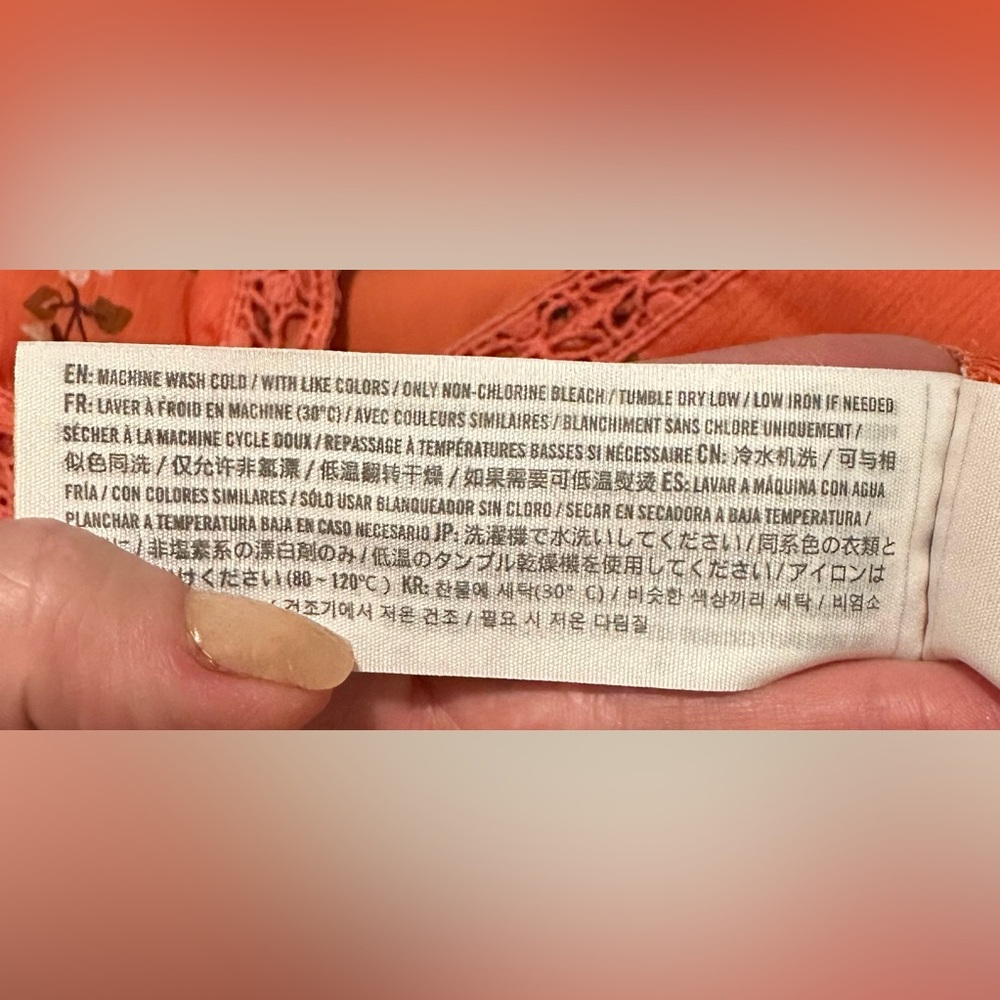 EN: MACHINE WASH COLD / WITH LIKE COLORS / ONLY NON-CHLORINE BLEACH / TUMBLE DRY LOW / LOW IRON IF NEEDED
FR: LAVER À FROID EN MACHINE (30°C) / AVEC COULEURS SIMILAIRES / BLANCHIMENT SANS CHLORE UNIQUEMENT /
SÉCHER À LA MACHINE CYCLE DOUX / REPASSAGE À TEMPÉRATURES BASSES SI NÉCESSAIRE CN: 冷水机洗 / 可与相
似色同洗 / 仅允许非氯漂 / 低温翻转干燥 / 如果需要可低温熨烫 ES: LAVAR A MÁQUINA CON AGUA
FRÍA / CON COLORES SIMILARES / SÓLO USAR BLANQUEADOR SIN CLORO / SECAR EN SECADORA A BAJA TEMPERATURA /
PLANCHAR A TEMPERATURA BAJA EN CASO NECESARIO JP: 洗濯機で水洗いしてください / 同系色の衣類と
に / 非塩素系の漂白剤のみ / 低温のタンブル乾燥機を使用してください / アイロンは
けください (80 ~ 120°C ) KR: 찬물에 세탁(30° C) / 비슷한 색상끼리 세탁 / 비염소
/ 건조기에서 저온 건조 / 필요 시 저온 다림질